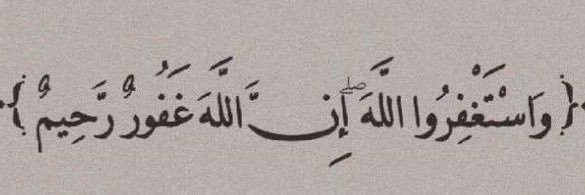 ﴿ وَاسْتَغْفِرُوا اللَّهَ ۖ إِنَّ اللَّهَ غَفُورٌ رَّحِيمٌ ﴾